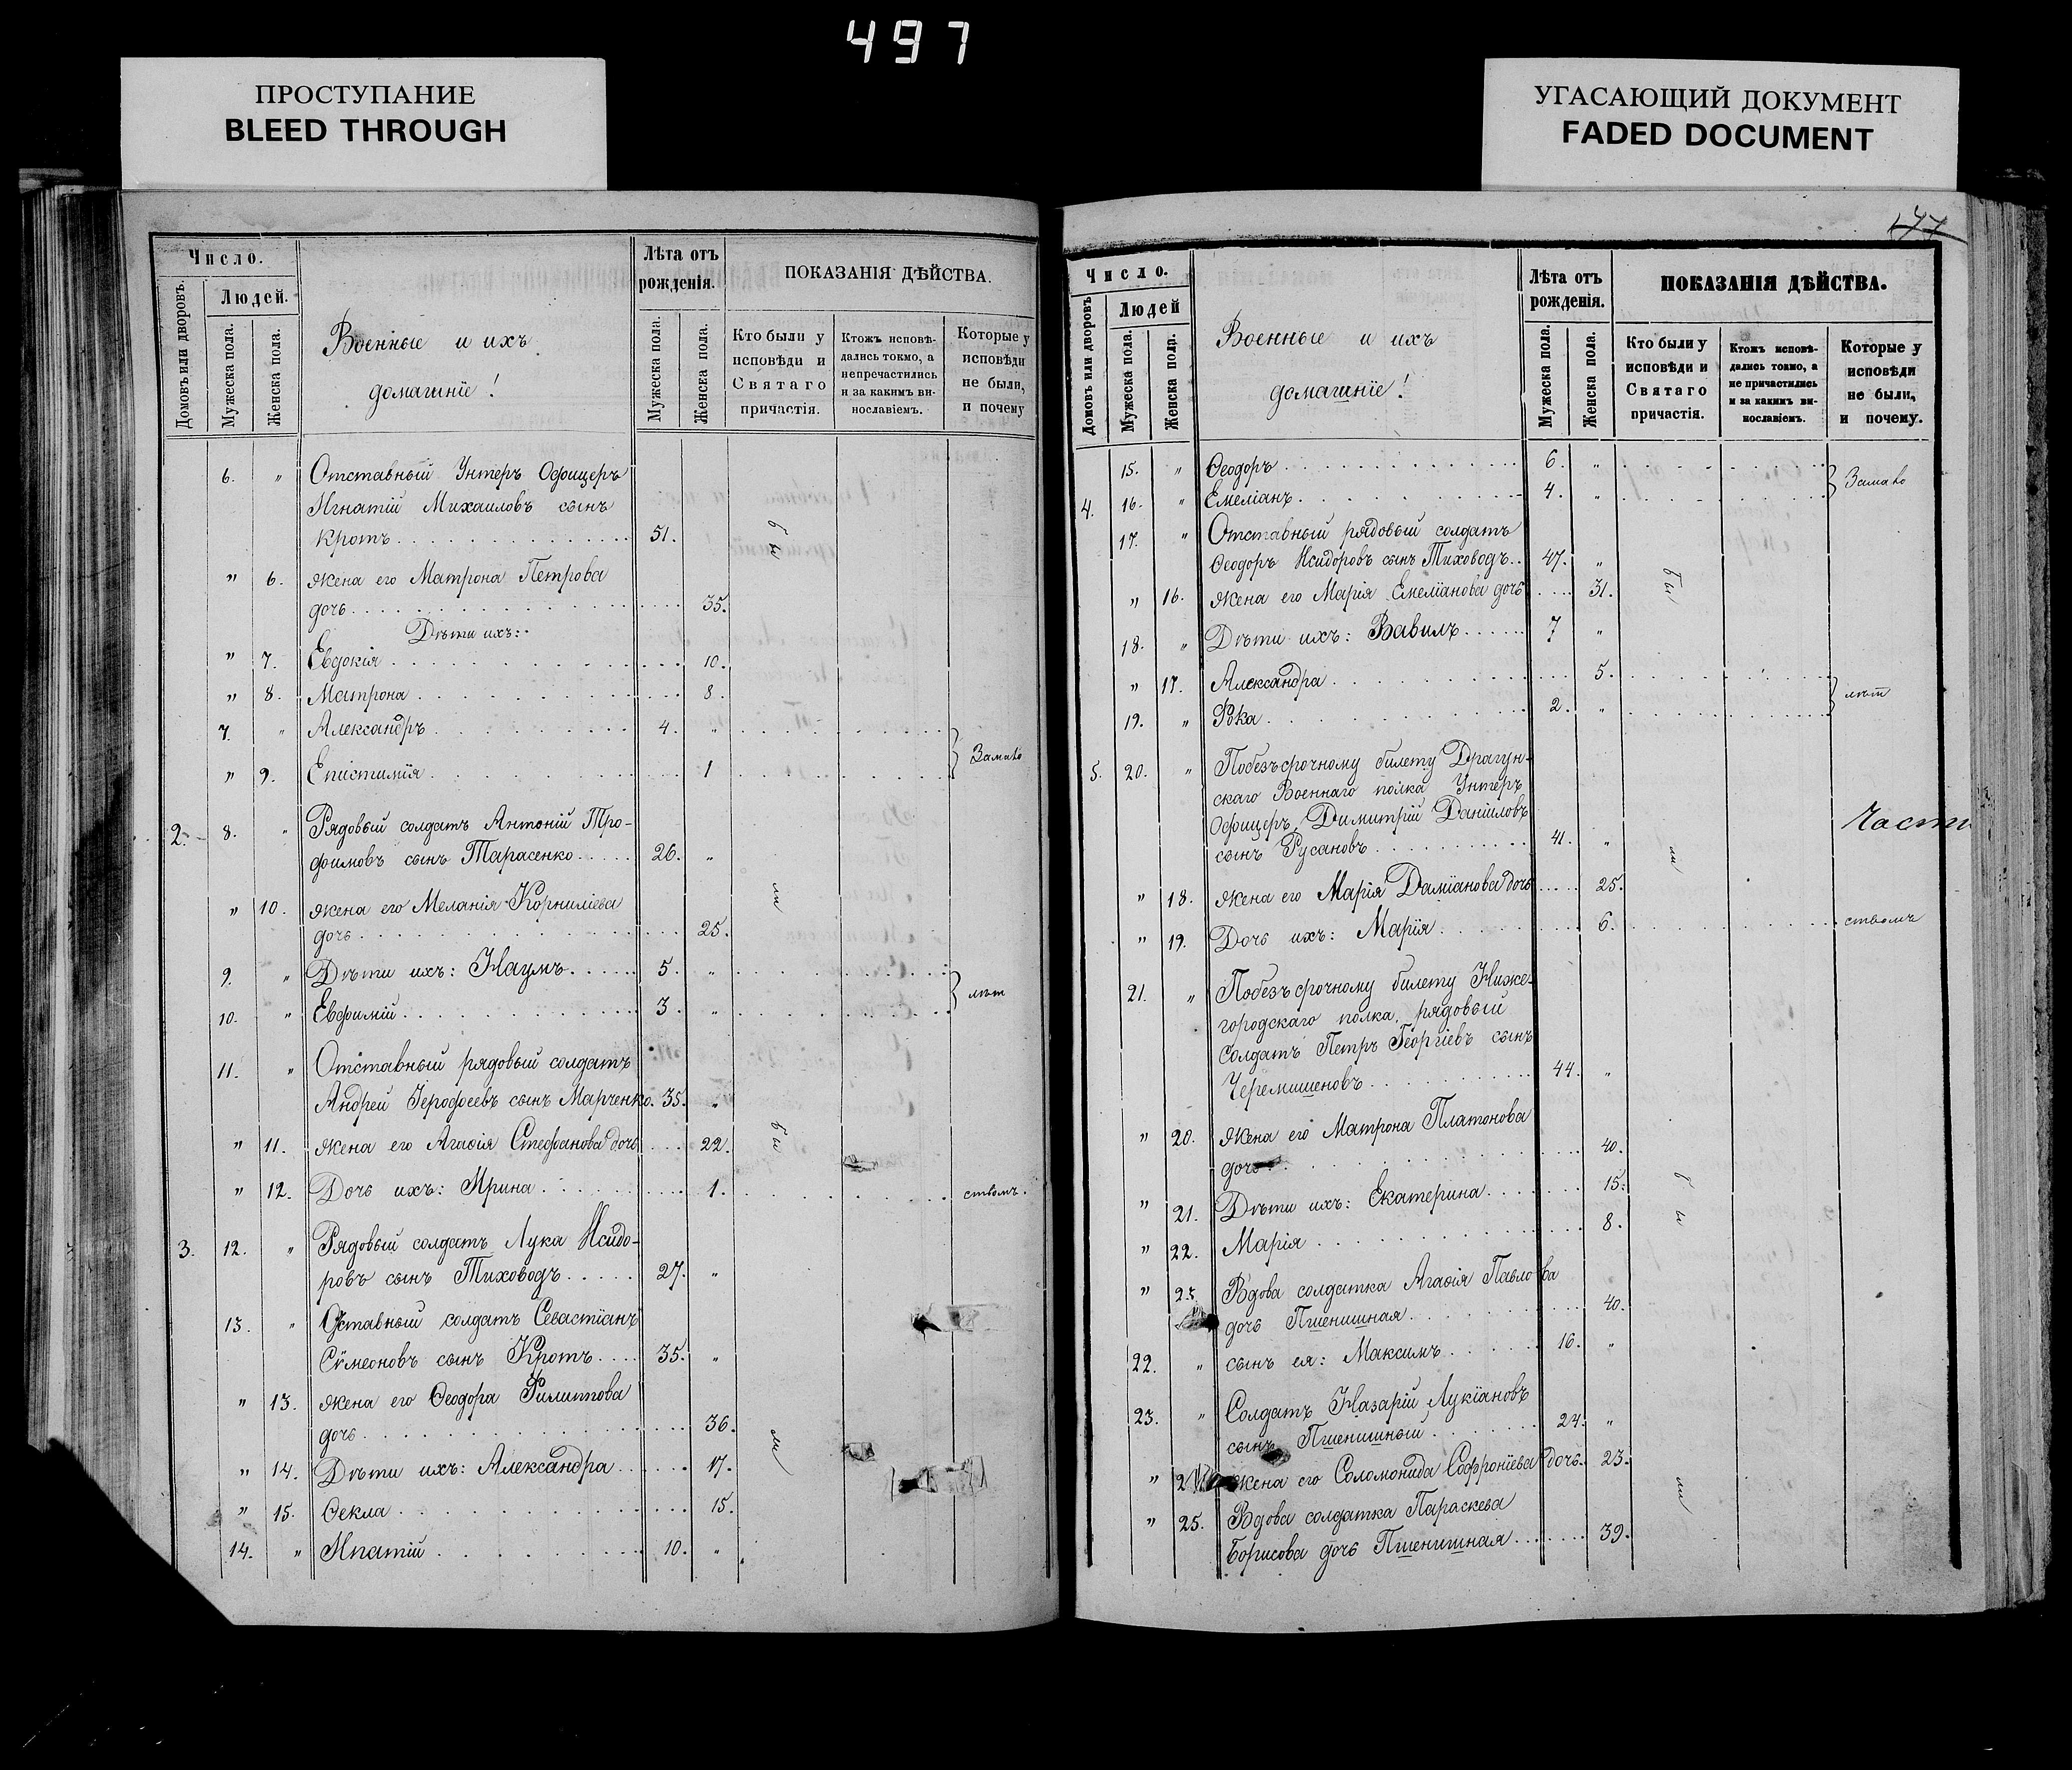 497
ПРОСТУПАНИЕ
BLEED THROUGH
УГАСАЮЩИЙ ДОКУМЕНТ
FADED DOCUMENT
Число.
Людей.
Домовъ или дворовъ.
Мужеска пола.
Женска пола.
Военные и ихъ
домашніе!
Лѣта отъ
рожденія.
Мужеска пола.
Женска пола.
ПОКАЗАНІЯ ДѢЙСТВА.
Кто были у
исповѣди и
Святаго
причастія.
Ктожъ исповѣ-
дались токмо, а
непричастились
и за какимъ ви-
нославіемъ.
Которые у
исповѣди
не были,
и почему
6. " Отставный Унтеръ Офицеръ
Игнатій Михаиловъ сынъ
Кротъ 51. бы
" 6. жена его Матрона Петрова
дочь 35.
Дѣти ихъ:
" 7. Евдокія 10.
" 8. Матрона 8.
7. " Александръ 4. "
" 9. Епистимія 1 Замало
2. 8. " Рядовый солдатъ Антоній Тро-
фимовъ сынъ Тарасенко 26. "
" 10. жена его Меланія Корниліева
дочь 25. ли
9. " Дѣти ихъ: Наумъ 5. "
10. " Евфимій 3. " лѣт
11. " Отставный рядовый солдатъ
Андрей Іерофеевъ сынъ Марченко. 35. "
" 11. жена его Агаѳія Стефанова дочь 22. бы
" 12. Дочь ихъ: Ирина 1. ствомъ.
3. 12. " Рядовый солдатъ Лука Исидо-
ровъ сынъ Тиховодъ 27. "
13. " Отставный солдатъ Севастіанъ
Сѵмеоновъ сынъ Кротъ 35. "
" 13. жена его Ѳеодора Филиппова
дочь 36. ли
" 14. Дѣти ихъ: Александра 17.
" 15. Ѳекла 15.
14. " Ипатій 10. "
477
Число.
Людей
Домовъ или дворовъ
Мужеска пола.
Женска пола.
Военные и ихъ
домашніе!
Лѣта отъ
рожденія.
Мужеска пола.
Женска пола.
ПОКАЗАНІЯ ДѢЙСТВА.
Кто были у
исповѣди и
Святаго
причастія.
Ктожъ исповѣ-
дались токмо, а
не причастились
и за какимъ ви-
нославіемъ.
Которые у
исповѣди
не были,
и почему.
15. " Ѳеодоръ 6. "
4. 16. " Емеліанъ 4. " Замало
17. " Отставный рядовый солдатъ
Ѳеодоръ Исидоровъ сынъ Тиховодъ 47. "
" 16. жена его Марія Емеліанова дочь 31. бы
18. " Дѣти ихъ: Вавилъ 7 "
" 17. Александра 5.
19. " Фока 2. " лѣт
5. 20. " Побезъсрочному билету Драгун-
скаго Военнаго полка Унтеръ
Офицеръ Димитрій Даніиловъ
сынъ Русановъ 41. " ли
" 18. жена его Марія Даміанова дочь 25.
" 19. Дочь ихъ: Марія 6. ствомъ
21. " Побезъсрочному билету Ниже-
городскаго полка, рядовый
солдатъ Петръ Георгіевъ сынъ
Черемишеновъ 44. "
" 20. жена его Матрона Платонова
дочь 40.
" 21. Дѣти ихъ: Екатерина 15. бы
" 22. Марія 8.
" 23 Вдова солдатка Агаѳія Павлова
дочь Пшенишная 40.
22. " сынъ ея: Максимъ 16. "
23. " Солдатъ Назарій Лукіановъ
сынъ Пшенишный 24. "
" жена его Соломонида Софроніева дочь. 23. ли
" 25. Вдова солдатка Параскева
Борисова дочь Пшенишная 39.